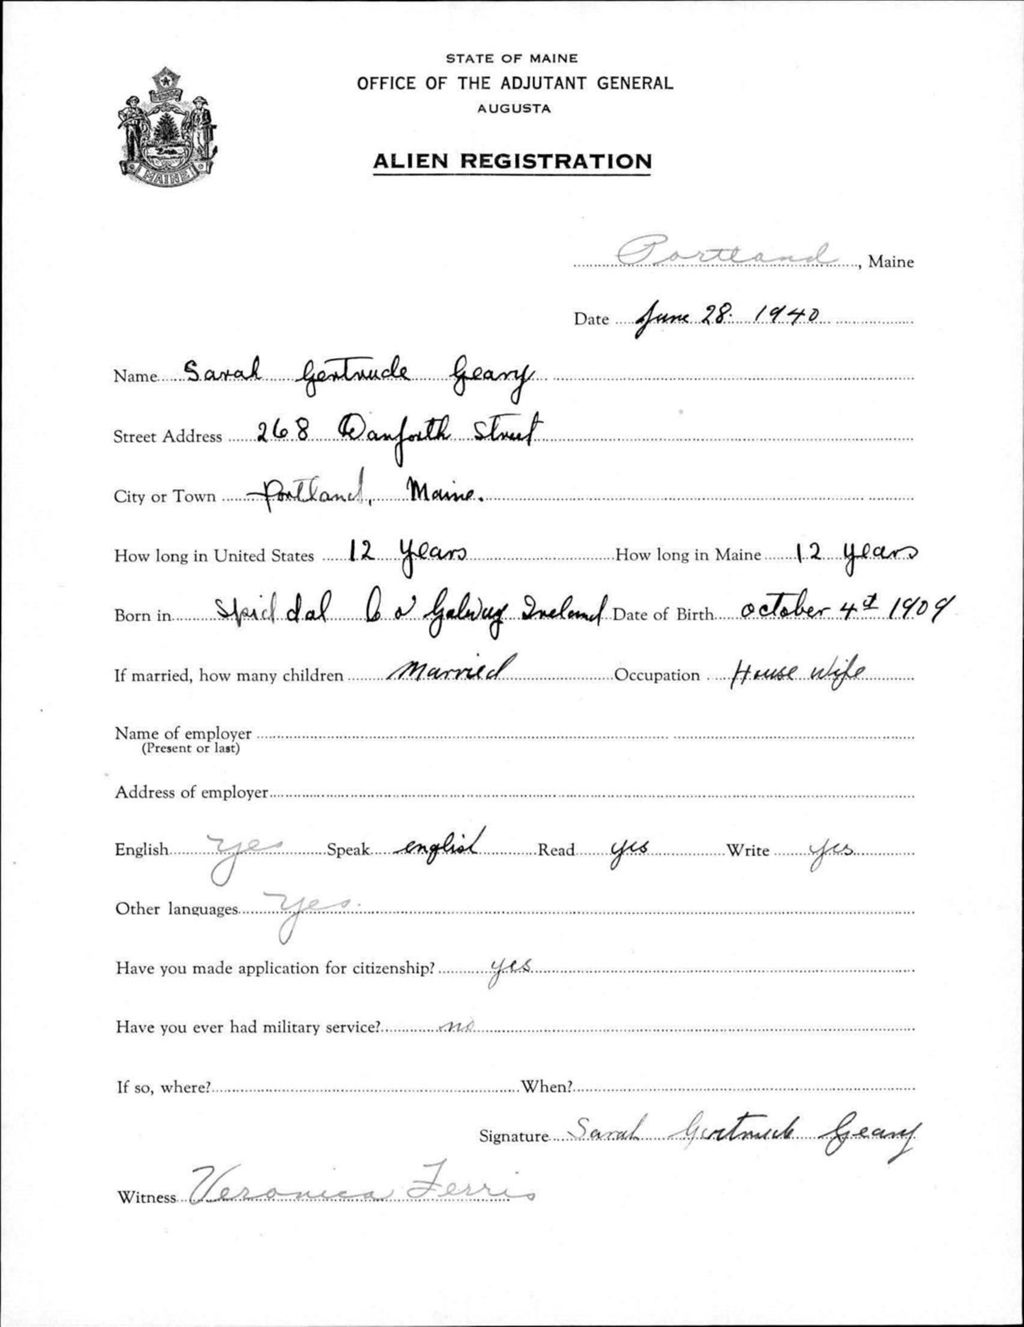 STATE OF MAINE
OFFICE OF THE ADJUTANT GENERAL
AUGUSTA
ALIEN REGISTRATION
MAINE
Portland, Maine
Date June 28. 1940
Name Sarah Gertrude Geary
Street Address 268 Danforth Street
City or Town Portland, Maine.
How long in United States 12 years How long in Maine 12 years
Born in Spiddal Co Galway Ireland Date of Birth october 4th 1909
If married, how many children Married Occupation House wife
Name of employer
(Present or last)
Address of employer
English yes Speak english Read yes Write yes
Other languages yes.
Have you made application for citizenship? yes
Have you ever had military service? no
If so, where? When?
Signature Sarah Gertrude Geary
Witness Veronica Ferris